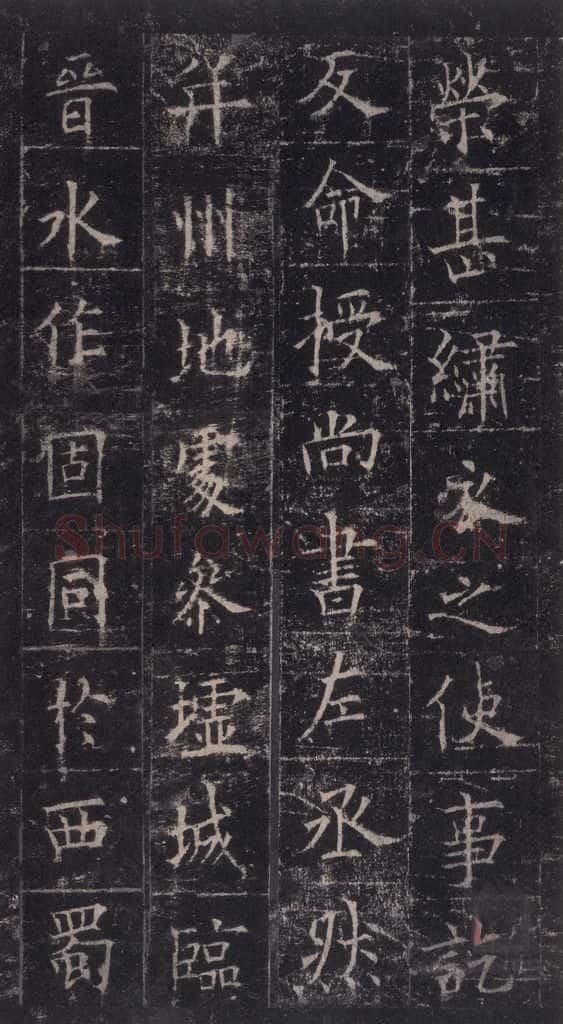 榮甚繡衣之使事訖
反命授尚書左丞然
并州地處參墟城臨
晉水作固同於西蜀
Shufawang.CN